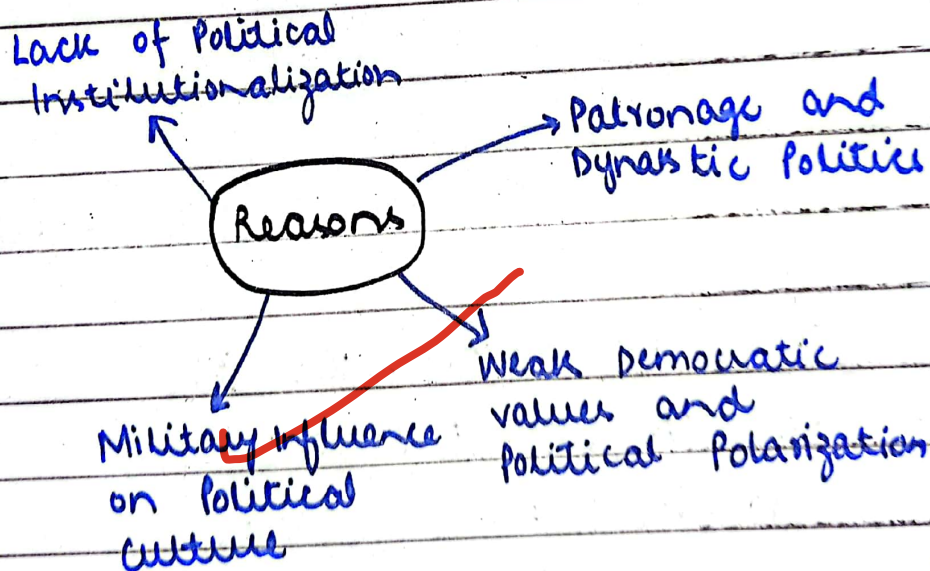 Lack of Political
Institutionalization
Patronage and
Dynastic Politics
Reasons
Weak Democratic
values and
Political Polarization
Military Influence
on Political
culture